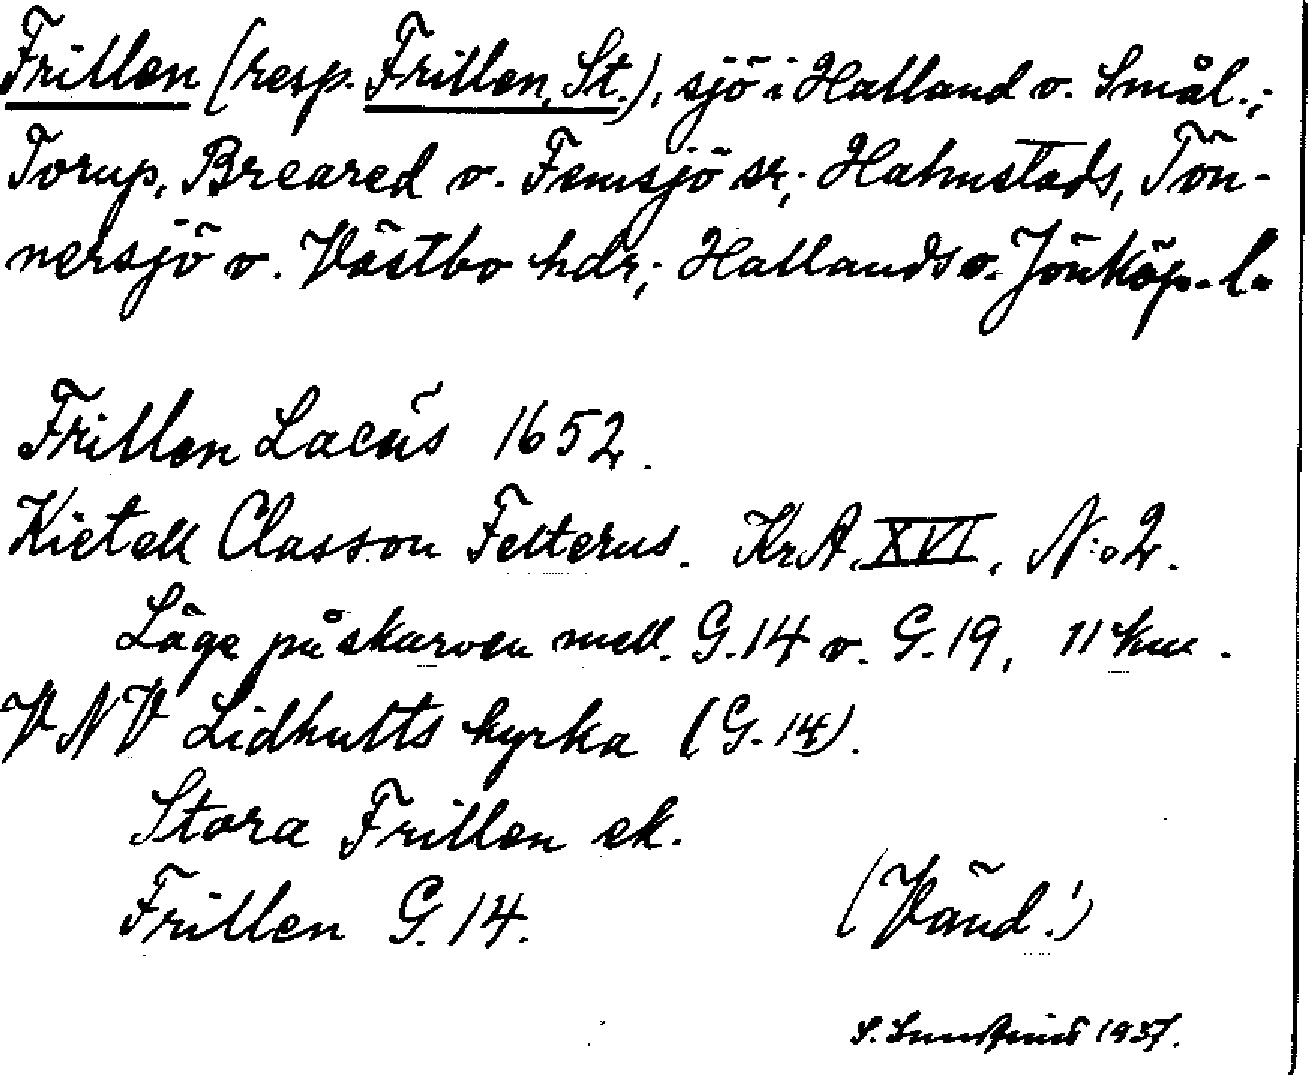 Frillen (resp. Frillen, St.), sjö i Halland o. Smål.;
Torup, Breared o. Femsjö sr; Halmstads, Tön-
nersjö o. Västbo hdr; Hallands o. Jönköp. l.
Frillen Lacus 1652.
Kietell Classon Felterus. KrA, XVI, N:o 2.
Läge på skarven mell. G.14 o. G.19, 11 km.
VNV Lidhults kyrka (G.14).
Stora Frillen ek.
Frillen G.14.
(Vänd!)
S. 1937.